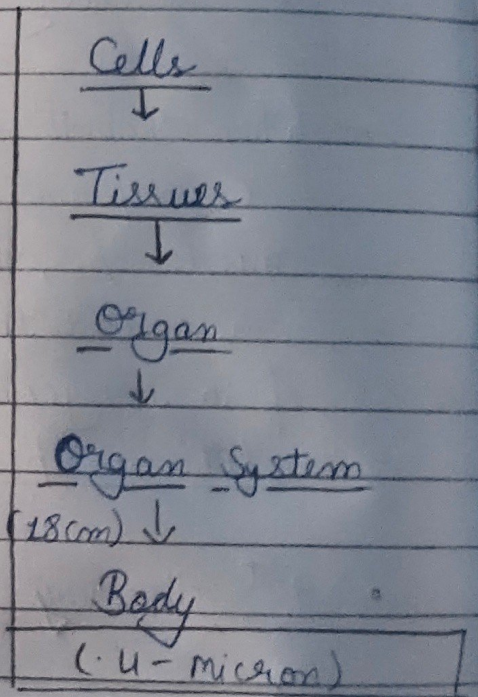 Cells
↓
Tissues
↓
Organ
↓
Organ System
(18cm) ↓
Body
(.u - micron)